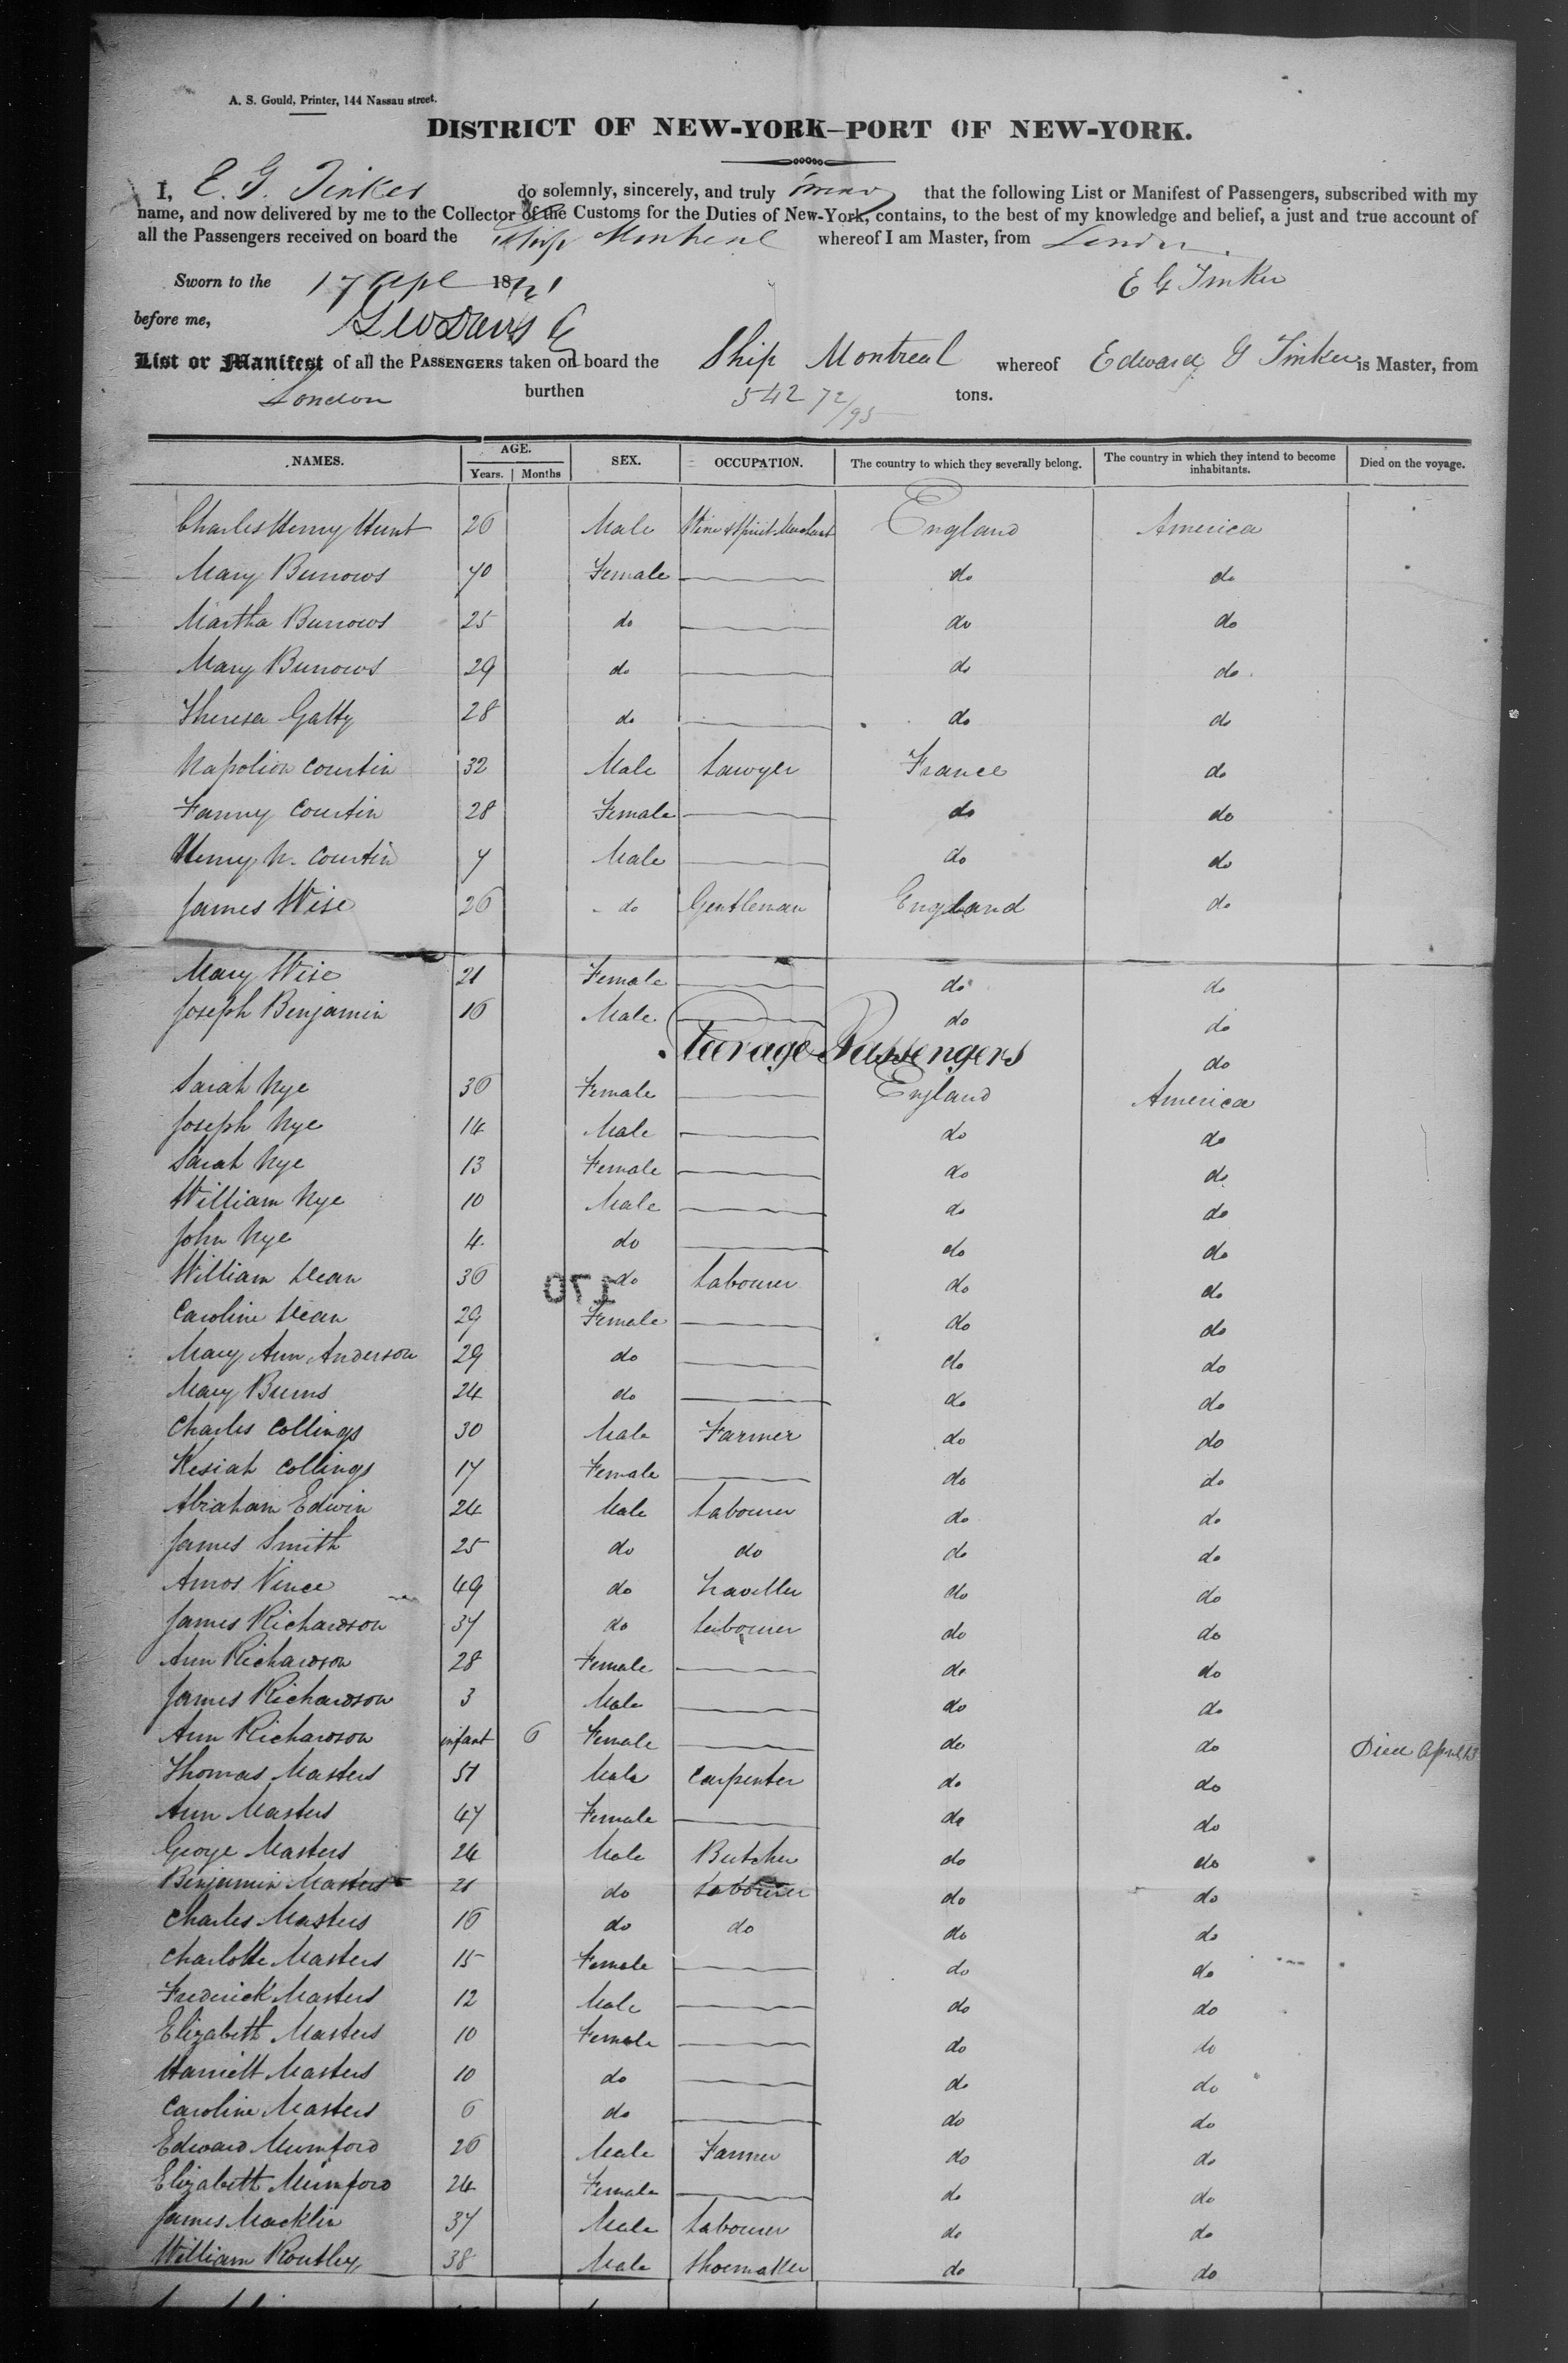 A. S. Gould, Printer, 144 Nassau street.
DISTRICT OF NEW-YORK—PORT OF NEW-YORK.
I, E. G. Tinker do solemnly, sincerely, and truly swear that the following List or Manifest of Passengers, subscribed with my
name, and now delivered by me to the Collector of the Customs for the Duties of New-York, contains, to the best of my knowledge and belief, a just and true account of
all the Passengers received on board the Ship Montreal whereof I am Master, from London
Sworn to the 17 Apl 18 E G Tinker
before me,
List or Manifest of all the PASSENGERS taken on board the Ship Montreal whereof Edward G Tinker is Master, from
London burthen 542 72/95 tons.
NAMES. AGE. Years. Months SEX. OCCUPATION. The country to which they severally belong. The country in which they intend to become inhabitants. Died on the voyage.
Charles Henry Hunt 26 Male Wine & Spirit Merchant England America
Mary Burrows 40 Female do do
Martha Burrows 25 do do do
Mary Burrows 29 do do do
Theresa Gatty 28 do do do
Napolion Courtin 32 Male Lawyer France do
Fanny Courtin 28 Female do do
Henry N. Courtin 7 Male do do
James Wise 26 do Gentleman England do
Mary Wise 21 Female do do
Joseph Benjamin 16 Male do do
Steerage Passengers do
Sarah Nye 36 Female England America
Joseph Nye 14 Male do do
Sarah Nye 13 Female do do
William Nye 10 Male do do
John Nye 4 do do do
William Dean 36 do Labourer do do
170
Caroline Dean 29 Female do do
Mary Ann Anderson 29 do do do
Mary Burns 24 do do do
Charles Collings 30 Male Farmer do do
Kesiah Collings 17 Female do do
Abraham Edwin 24 Male Labourer do do
James Smith 25 do do do do
Amos Vince 49 do Traveller do do
James Richardson 37 do Labourer do do
Ann Richardson 28 Female do do
James Richardson 3 Male do do
Ann Richardson infant 6 Female do do Died April 13
Thomas Masters 51 Male Carpenter do do
Ann Masters 47 Female do do
George Masters 24 Male Butcher do do
Benjamin Masters 21 do Labourer do do
Charles Masters 16 do do do do
Charlotte Masters 15 Female do do
Frederick Masters 12 Male do do
Elizabeth Masters 10 Female do do
Harriett Masters 10 do do do
Caroline Masters 6 do do do
Edward Mumford 26 Male Farmer do do
Elizabeth Mumford 24 Female do do
James Macklin 37 Male Labourer do do
William Routley 38 Male Shoemaker do do